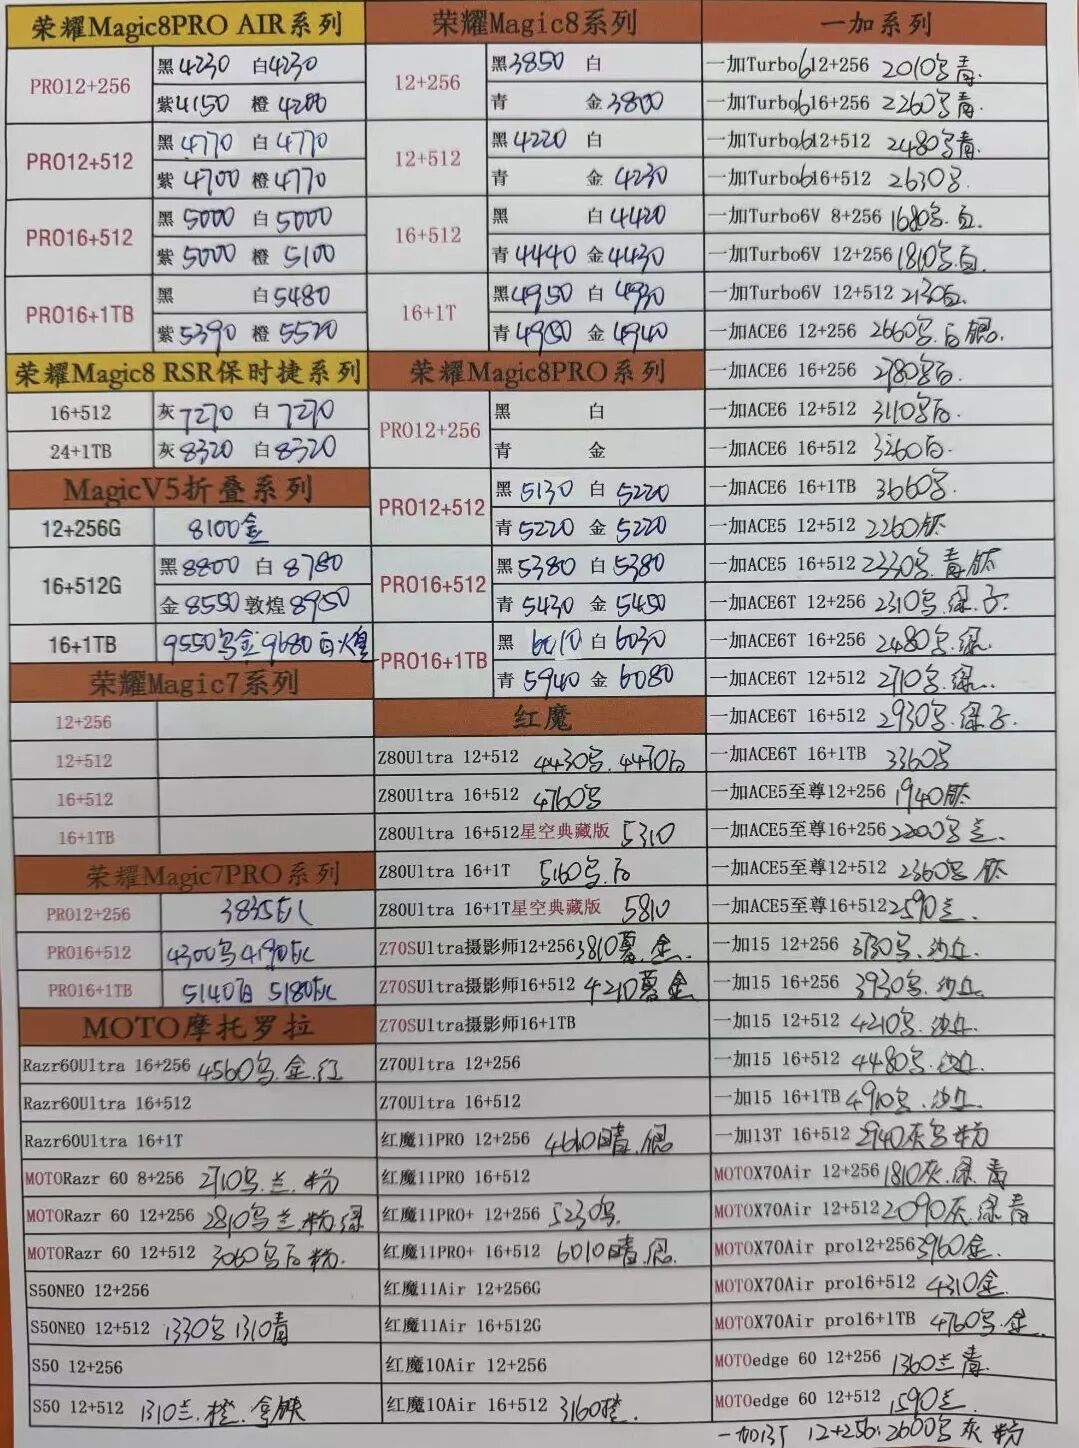 荣耀Magic8PRO AIR系列
PRO12+256
黑4230 白4230
紫4150 橙4200
PRO12+512
黑4770 白4770
紫4700 橙4770
PRO16+512
黑5000 白5000
紫5000 橙5100
PRO16+1TB
黑 白5480
紫5390 橙5520
荣耀Magic8 RSR保时捷系列
16+512 灰7270 白7270
24+1TB 灰8320 白8320
MagicV5折叠系列
12+256G 8100金
16+512G
黑8800 白8780
金8550 敦煌8950
16+1TB 9550乌金 9680白火皇
荣耀Magic7系列
12+256
12+512
16+512
16+1TB
荣耀Magic7PRO系列
PRO12+256 3835灰
PRO16+512 4300乌4190灰
PRO16+1TB 5140白 5180灰
MOTO摩托罗拉
Razr60Ultra 16+256 4560乌.金.红
Razr60Ultra 16+512
Razr60Ultra 16+1T
MOTORazr 60 8+256 2710乌.兰.粉
MOTORazr 60 12+256 2810乌兰粉绿
MOTORazr 60 12+512 3060乌白粉.
S50NEO 12+256
S50NEO 12+512 1330乌1310青
S50 12+256
S50 12+512 1310兰.橙.拿铁
荣耀Magic8系列
12+256
黑3850 白
青 金3800
12+512
黑4220 白
青 金4230
16+512
黑 白4420
青4440 金4430
16+1T
黑4950 白4930
青4900 金4940
荣耀Magic8PRO系列
PRO12+256
黑 白
青 金
PRO12+512
黑5130 白5220
青5220 金5220
PRO16+512
黑5380 白5380
青5430 金5450
PRO16+1TB
黑6010 白6030
青5940 金6080
红魔
Z80Ultra 12+512 4430乌.4470白
Z80Ultra 16+512 4760乌
Z80Ultra 16+512星空典藏版 5310
Z80Ultra 16+1T 5160乌.白
Z80Ultra 16+1T星空典藏版 5810
Z70SUltra摄影师12+256 3810蓦.金.
Z70SUltra摄影师16+512 4210蓦金
Z70SUltra摄影师16+1TB
Z70Ultra 12+256
Z70Ultra 12+512
红魔11PRO 12+256 4610晴.银
红魔11PRO 16+512
红魔11PRO+ 12+256 5230乌.
红魔11PRO+ 16+512 6010晴.银.
红魔11Air 12+256G
红魔11Air 16+512G
红魔10Air 12+256
红魔10Air 16+512 3160橙.
一加系列
一加Turbo6 12+256 2010乌青.
一加Turbo6 16+256 2260乌青.
一加Turbo6 12+512 2480乌青.
一加Turbo6 16+512 2630乌.
一加Turbo6V 8+256 1680乌.白.
一加Turbo6V 12+256 1810乌.白.
一加Turbo6V 12+512 2130白.
一加ACE6 12+256 2660乌.白银.
一加ACE6 16+256 2780乌白.
一加ACE6 12+512 3110乌白.
一加ACE6 16+512 3260白.
一加ACE6 16+1TB 3660乌.
一加ACE5 12+512 2260钛
一加ACE5 16+512 2330乌.青钛
一加ACE6T 12+256 2310乌.绿.子.
一加ACE6T 16+256 2480乌.绿.
一加ACE6T 12+512 2710乌.绿..
一加ACE6T 16+512 2930乌.绿子.
一加ACE6T 16+1TB 3360乌
一加ACE5至尊12+256 1940钛
一加ACE5至尊16+256 2200乌兰.
一加ACE5至尊12+512 2360乌.钛
一加ACE5至尊16+512 2590兰.
一加15 12+256 3730乌.沙丘.
一加15 16+256 3930乌.沙丘
一加15 12+512 4210乌.沙丘.
一加15 16+512 4480乌.沙丘.
一加15 16+1TB 4910乌.沙丘.
一加13T 16+512 2940灰乌粉
MOTOX70Air 12+256 1810灰.绿.青
MOTOX70Air 12+512 2090灰.绿青
MOTOX70Air pro12+256 3960金.
MOTOX70Air pro16+512 4310金.
MOTOX70Air pro16+1TB 4760乌.金.
MOTOedge 60 12+256 1360兰青.
MOTOedge 60 12+512 1590兰.
一加13T 12+256:2600乌灰粉